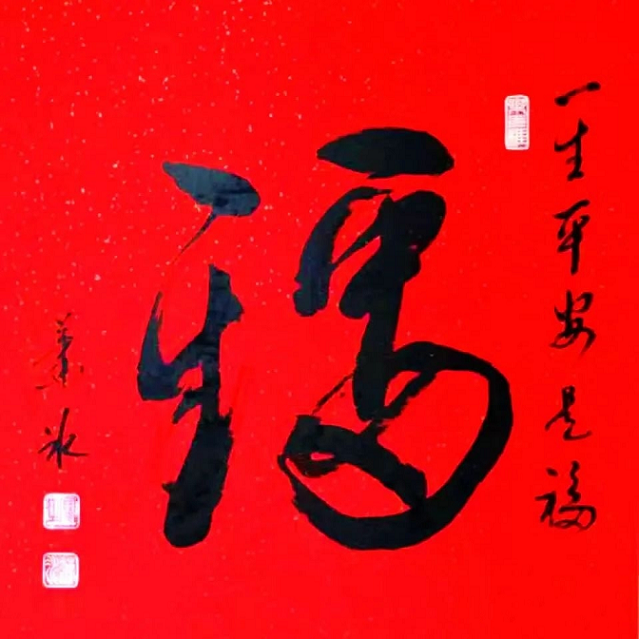 一生平安是福
福
叶冰